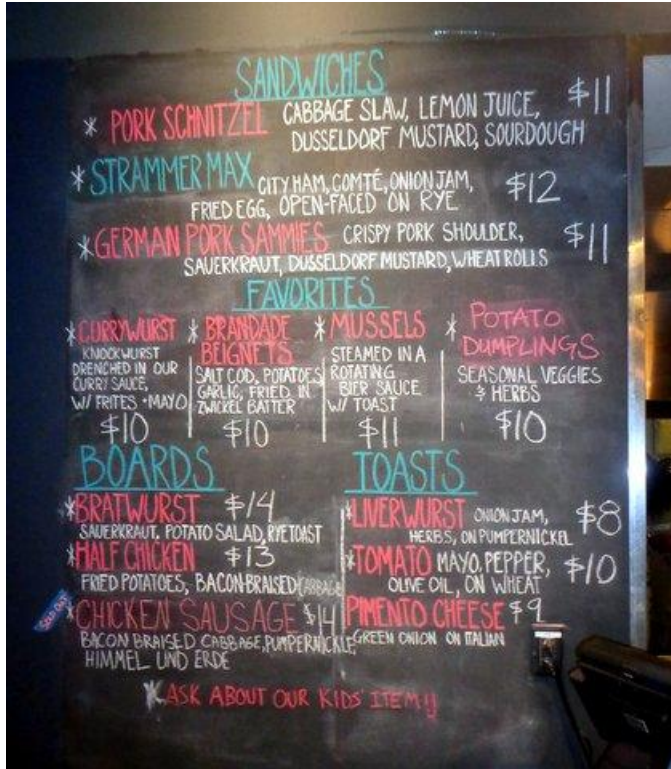 SANDWICHES
* PORK SCHNITZEL CABBAGE SLAW, LEMON JUICE, $11
DUSSELDORF MUSTARD, SOURDOUGH
* STRAMMER MAX CITY HAM, COMTÉ, ONION JAM, $12
FRIED EGG, OPEN-FACED ON RYE
* GERMAN PORK SAMMIES CRISPY PORK SHOULDER, $11
SAUERKRAUT, DUSSELDORF MUSTARD, WHEAT ROLLS
FAVORITES
* CURRYWURST
KNOCKWURST
DRENCHED IN OUR
CURRY SAUCE,
W/ FRITES + MAYO
$10
* BRANDADE
BEIGNETS
SALT COD, POTATOES
GARLIC, FRIED IN
ZWICKEL BATTER
$10
* MUSSELS
STEAMED IN A
ROTATING
BIER SAUCE
W/ TOAST
$11
* POTATO
DUMPLINGS
SEASONAL VEGGIES
& HERBS
$10
BOARDS
* BRATWURST $14
SAUERKRAUT, POTATO SALAD, RYE TOAST
* HALF CHICKEN $13
FRIED POTATOES, BACON-BRAISED CABBAGE
SOLD OUT
* CHICKEN SAUSAGE $14
BACON BRAISED CABBAGE, PUMPERNICKLE,
HIMMEL UND ERDE
TOASTS
* LIVERWURST ONION JAM, $8
HERBS, ON PUMPERNICKEL
* TOMATO MAYO, PEPPER, $10
OLIVE OIL, ON WHEAT
PIMENTO CHEESE $9
GREEN ONION ON ITALIAN
* ASK ABOUT OUR KIDS' ITEMS